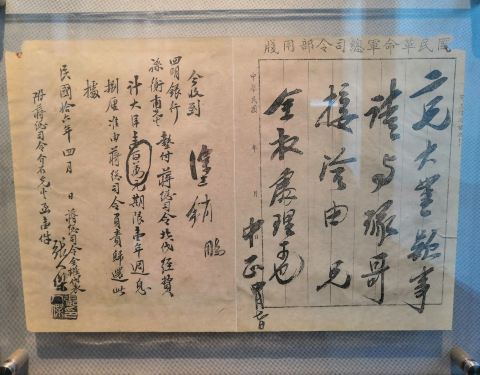 國民革命軍總司令部用牋
二兄大鑒
請與琢哥
接洽由兄
全权處理可也
中正
中華民國 年 月
今收到
註銷
四明銀行
孫衡甫兄墊付蔣總司令北伐經費
計大洋壹百萬元期限壹年週息
捌厘准由蔣總司令負責歸還此
據
民國拾六年四月 日 蔣總司令全權代表
張人傑
附蔣總司令介石兄函壹件